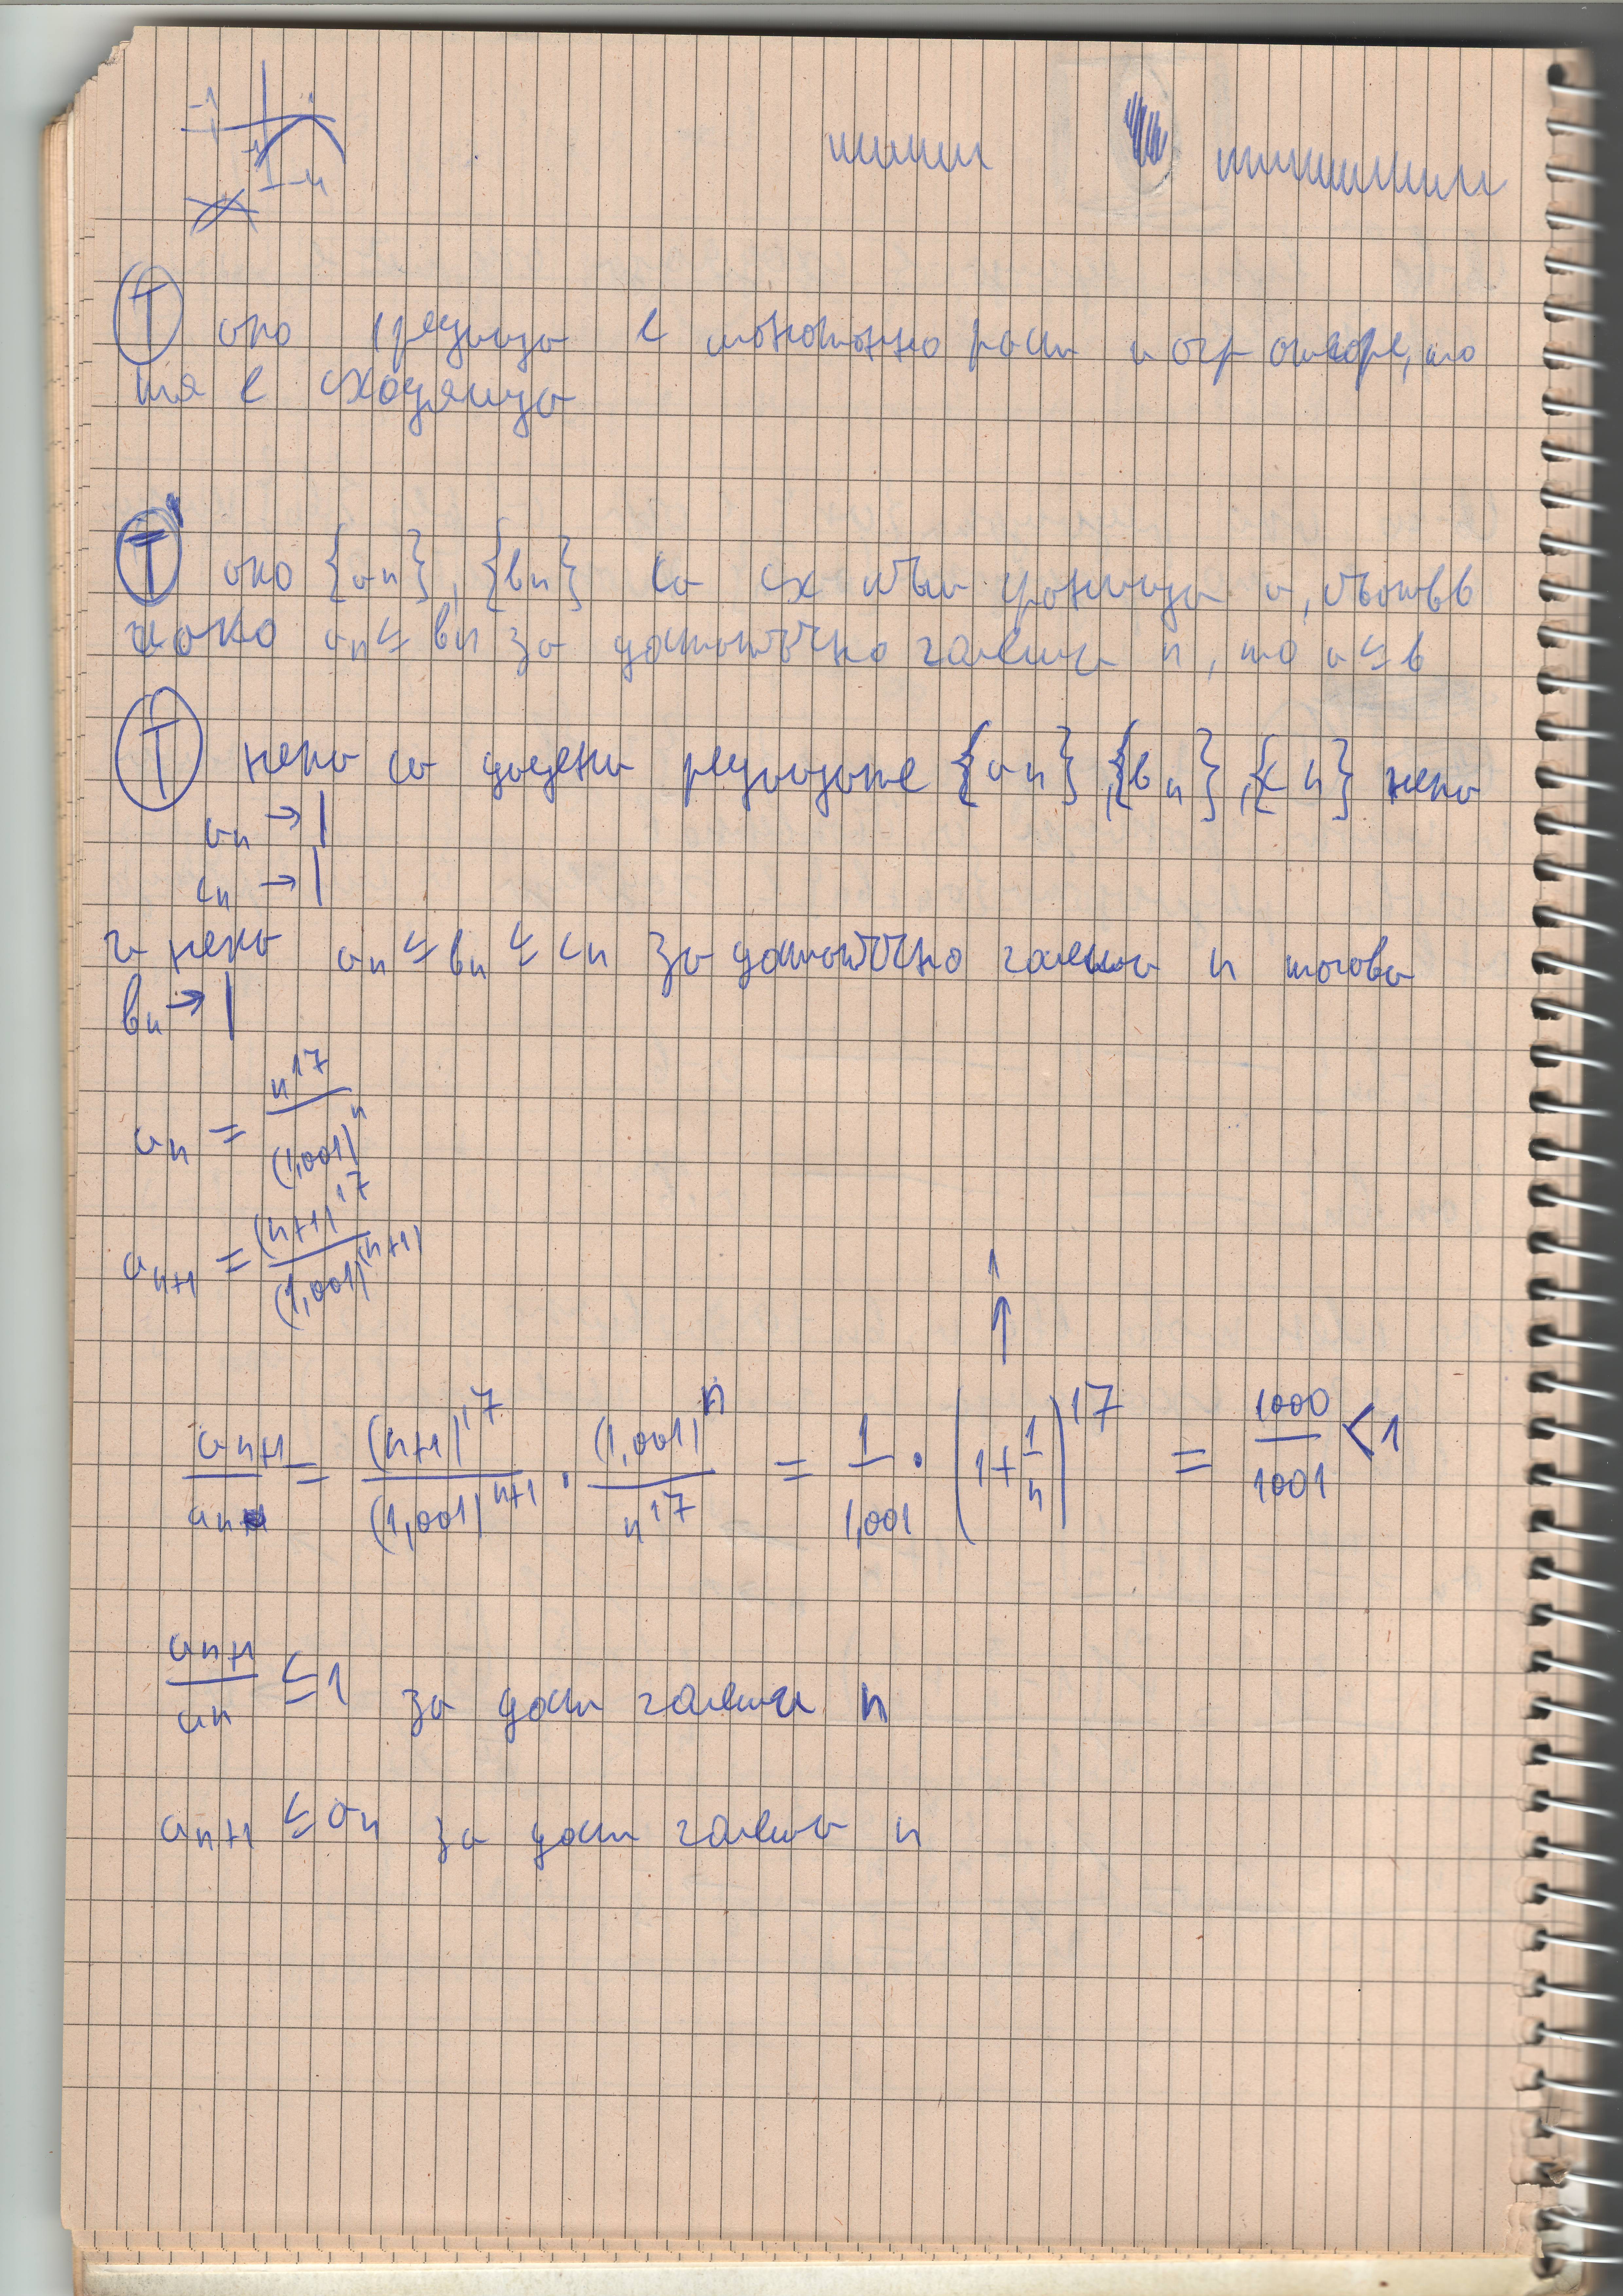 -1
-1
-4
Т ако редица е монотонно раст и огр отгоре, то
тя е сходяща
Т ако {an}, {bn} са сх към граница а, към b
и ако an ≤ bn за достатъчно големи n, то a ≤ b
Т нека са дадени редиците {an}, {bn}, {cn} нека
an → l
cn → l
и нека an ≤ bn ≤ cn за достатъчно големи n тогава
bn → l
an = n^17 / (1,001)^n
an+1 = (n+1)^17 / (1,001)^(n+1)
1
↑
an+1 / an = (n+1)^17 / (1,001)^n+1 · (1,001)^n / n^17 = 1 / 1,001 · (1 + 1/n)^17 = 1000 / 1001 < 1
an+1 / an ≤ 1 за дост големи n
an+1 ≤ an за дост големи n